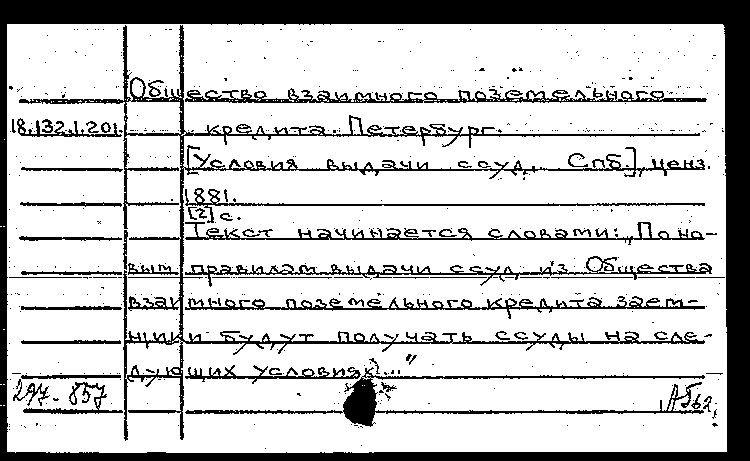 Общество взаимного поземельного
18.132.1.201. кредита. Петербург.
[Условия выдачи ссуд. Спб.], ценз.
1881.
[2] с.
Текст начинается словами: „По но-
вым правилам выдачи ссуд из Общества
взаимного поземельного кредита заем-
щики будут получать ссуды на сле-
дующих условиях..."
297-857